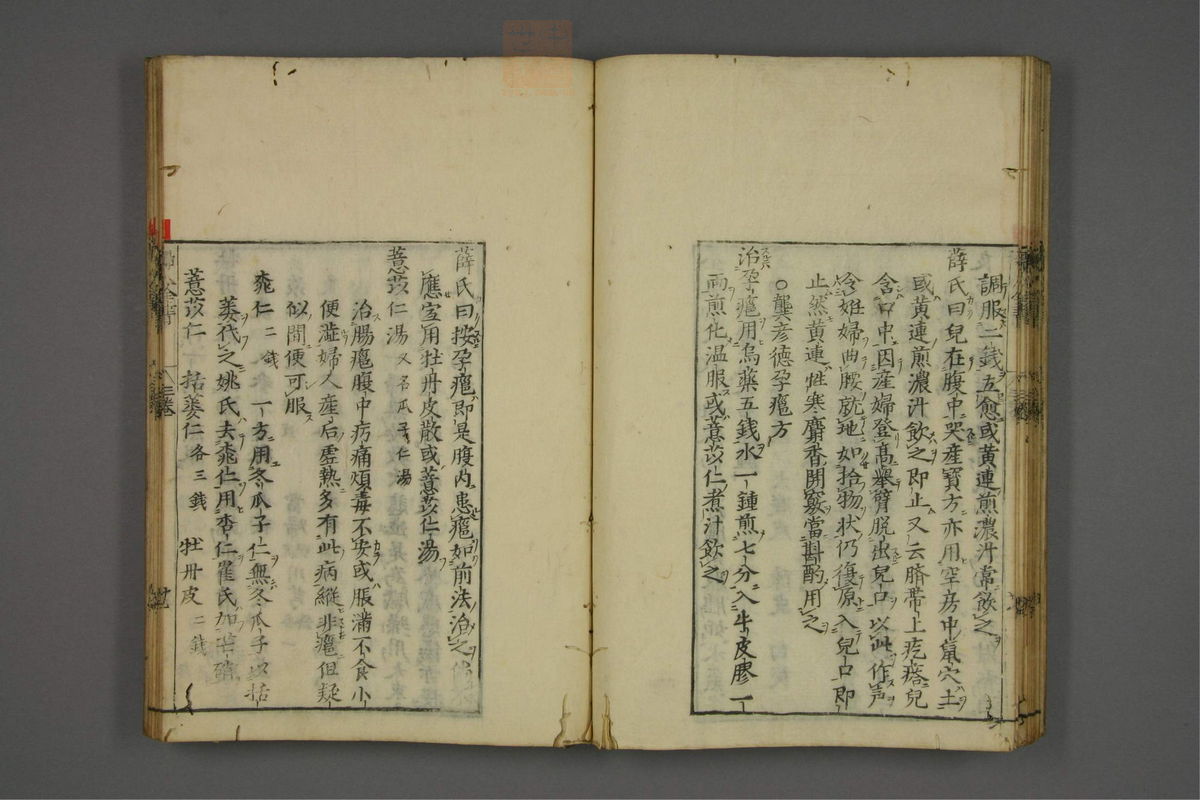 調服二錢立愈或黄連煎濃汁常飲之
薛氏曰兒在腹中哭産寶方亦用空房中鼠穴土
或黄連煎濃汁飲之即止又云臍帯上疙瘩兒
含口中因産婦登髙舉臂脱出兒口以此作声
令姙婦曲腰就地如拾物状仍復原入兒口即
止然黄連性寒麝香開竅當斟酌用之
○龔彦德孕癰方
治孕癰用烏藥五錢水一鍾煎七分入牛皮膠一
兩煎化温服或薏苡仁煮汁飲之
薛氏曰按孕癰即是腹内患癰如前法治之
應宜用牡丹皮散或薏苡仁湯
薏苡仁湯 又名瓜子仁湯
治腸癰腹中㽲痛煩毒不安或脹滿不食小
便澁婦人産后虚熱多有此病縱非癰但疑
似間便可服
薏苡仁 括蔞仁各三錢 牡丹皮二錢
桃仁二錢 一方用冬瓜子仁無冬瓜子以括
蔞代之姚氏去桃仁用杏仁崔氏加芒硝